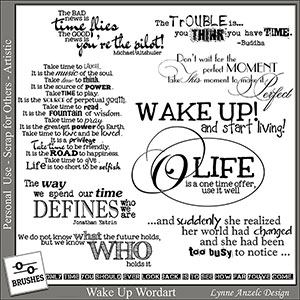 Personal Use - Scrap for Others - Artistic
The BAD
news is
time flies
The GOOD
news is
you're the pilot!
Michael Altshuler
The TROUBLE is...
you THINK you have TIME.
-Buddha
Don't wait for the
perfect MOMENT
Take this moment to make it
Perfect
Take time to LAUGH,
It is the music of the soul.
Take time to think
It is the source of POWER.
Take TIME to play.
It is the SOURCE of perpetual youth.
Take time to read.
It is the FOUNTAIN of wisdom.
Take time to pray.
It is the greatest power on Earth.
Take time to love and be loved.
It is a privilege
Take Time to be friendly.
It is the ROAD to happiness.
Take time to give
Life is too short to be selfish
WAKE UP!
and start living!
LIFE
is a one time offer,
use it well
The way
we spend our time
DEFINES who we are
Jonathan Estrin
We do not know what the future holds,
but we know
WHO
holds it
...and suddenly she realized
her world had changed
and she had been
too busy to notice ...
BRUSHES
ONLY TIME YOU SHOULD EVER LOOK BACK IS TO SEE HOW FAR YOU'VE COME
Wake Up Wordart
Lynne Anzelc Design